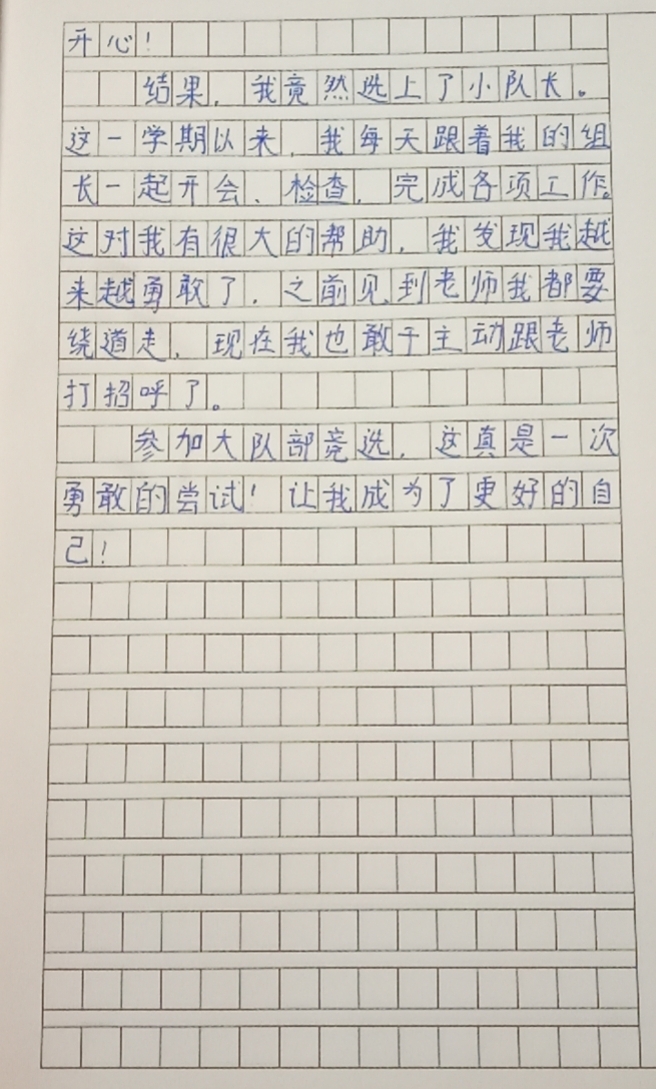 开心！
结果，我竟然选上了小队长。
这一学期以来，我每天跟着我的组
长一起开会、检查，完成各项工作。
这对我有很大的帮助，我发现我越
来越勇敢了，之前见到老师我都要
绕道走，现在我也敢于主动跟老师
打招呼了。
参加大队部竞选，这真是一次
勇敢的尝试！让我成为了更好的自
己！